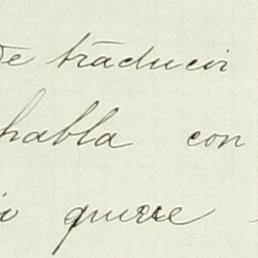 de traducir
habla con
quiere